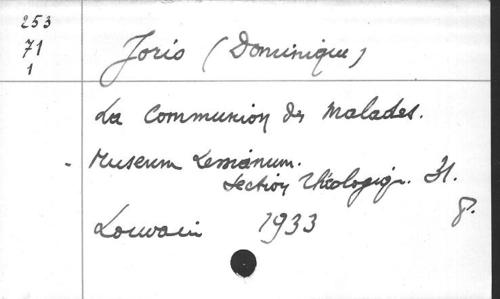 253
71
1
Joris (Dominique)
La Communion des Malades.
- Museum Lessianum.
Section théologiq. 31.
8.
Louvain 1933